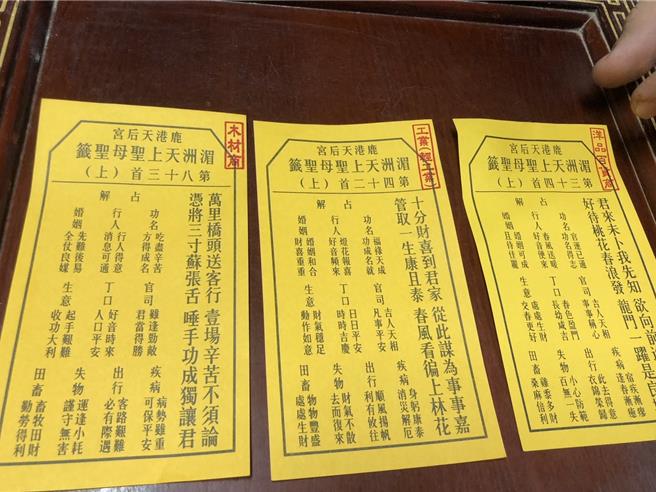 木材商
鹿港天后宮
湄洲天上聖母聖籤
第八十三首(上)
萬里橋頭送客行 壹場辛苦不須論
憑將三寸蘇張舌 唾手功成獨讓君
占解
功名 吃盡辛苦 方得成名 官司 雖逢勁敵 君當得勝 疾病 病勢雖重 可保平安
行人 行人得意 消息可通 丁口 好音時來 人口平安 出行 客路艱難 必有際遇
婚姻 先難後易 全仗良媒 生意 起手艱難 收功大利 失物 運逢小耗 謹守無害
田畜 畜牧田財 勤勞得利
鹿港天后宮
湄洲天上聖母聖籤
第四十二首(上)
十分財喜到君家 從此謀為事事嘉
管取一生康且泰 春風看徧上林花
占解
功名 福祿天成 功名成就 官司 吉人天相 凡事平安 疾病 身躬康泰 消災解厄
行人 燈花報喜 好音頻來 丁口 日日平安 時時吉慶 出行 順風揚帆 利有攸往
婚姻 婚姻和合 財喜重重 生意 財氣穩足 動作如意 失物 財氣不散 去而復來
田畜 物物豐盛 處處生財
洋品百貨商
鹿港天后宮
湄洲天上聖母聖籤
第四十三首(上)
君來未卜我先知 欲向前
好待桃花春浪發 龍門一躍是
占解
功名 官運已通 官司 吉人天相 事事稱心 疾病
行人 春風送暖 好音便來 丁口 春色盈門 長幼咸吉 出行 此去得意 衣錦榮歸
婚姻 婚姻可成 生意 處處生財 失物 小心防範 百無一失
田畜 雞豕多財 桑麻倍利